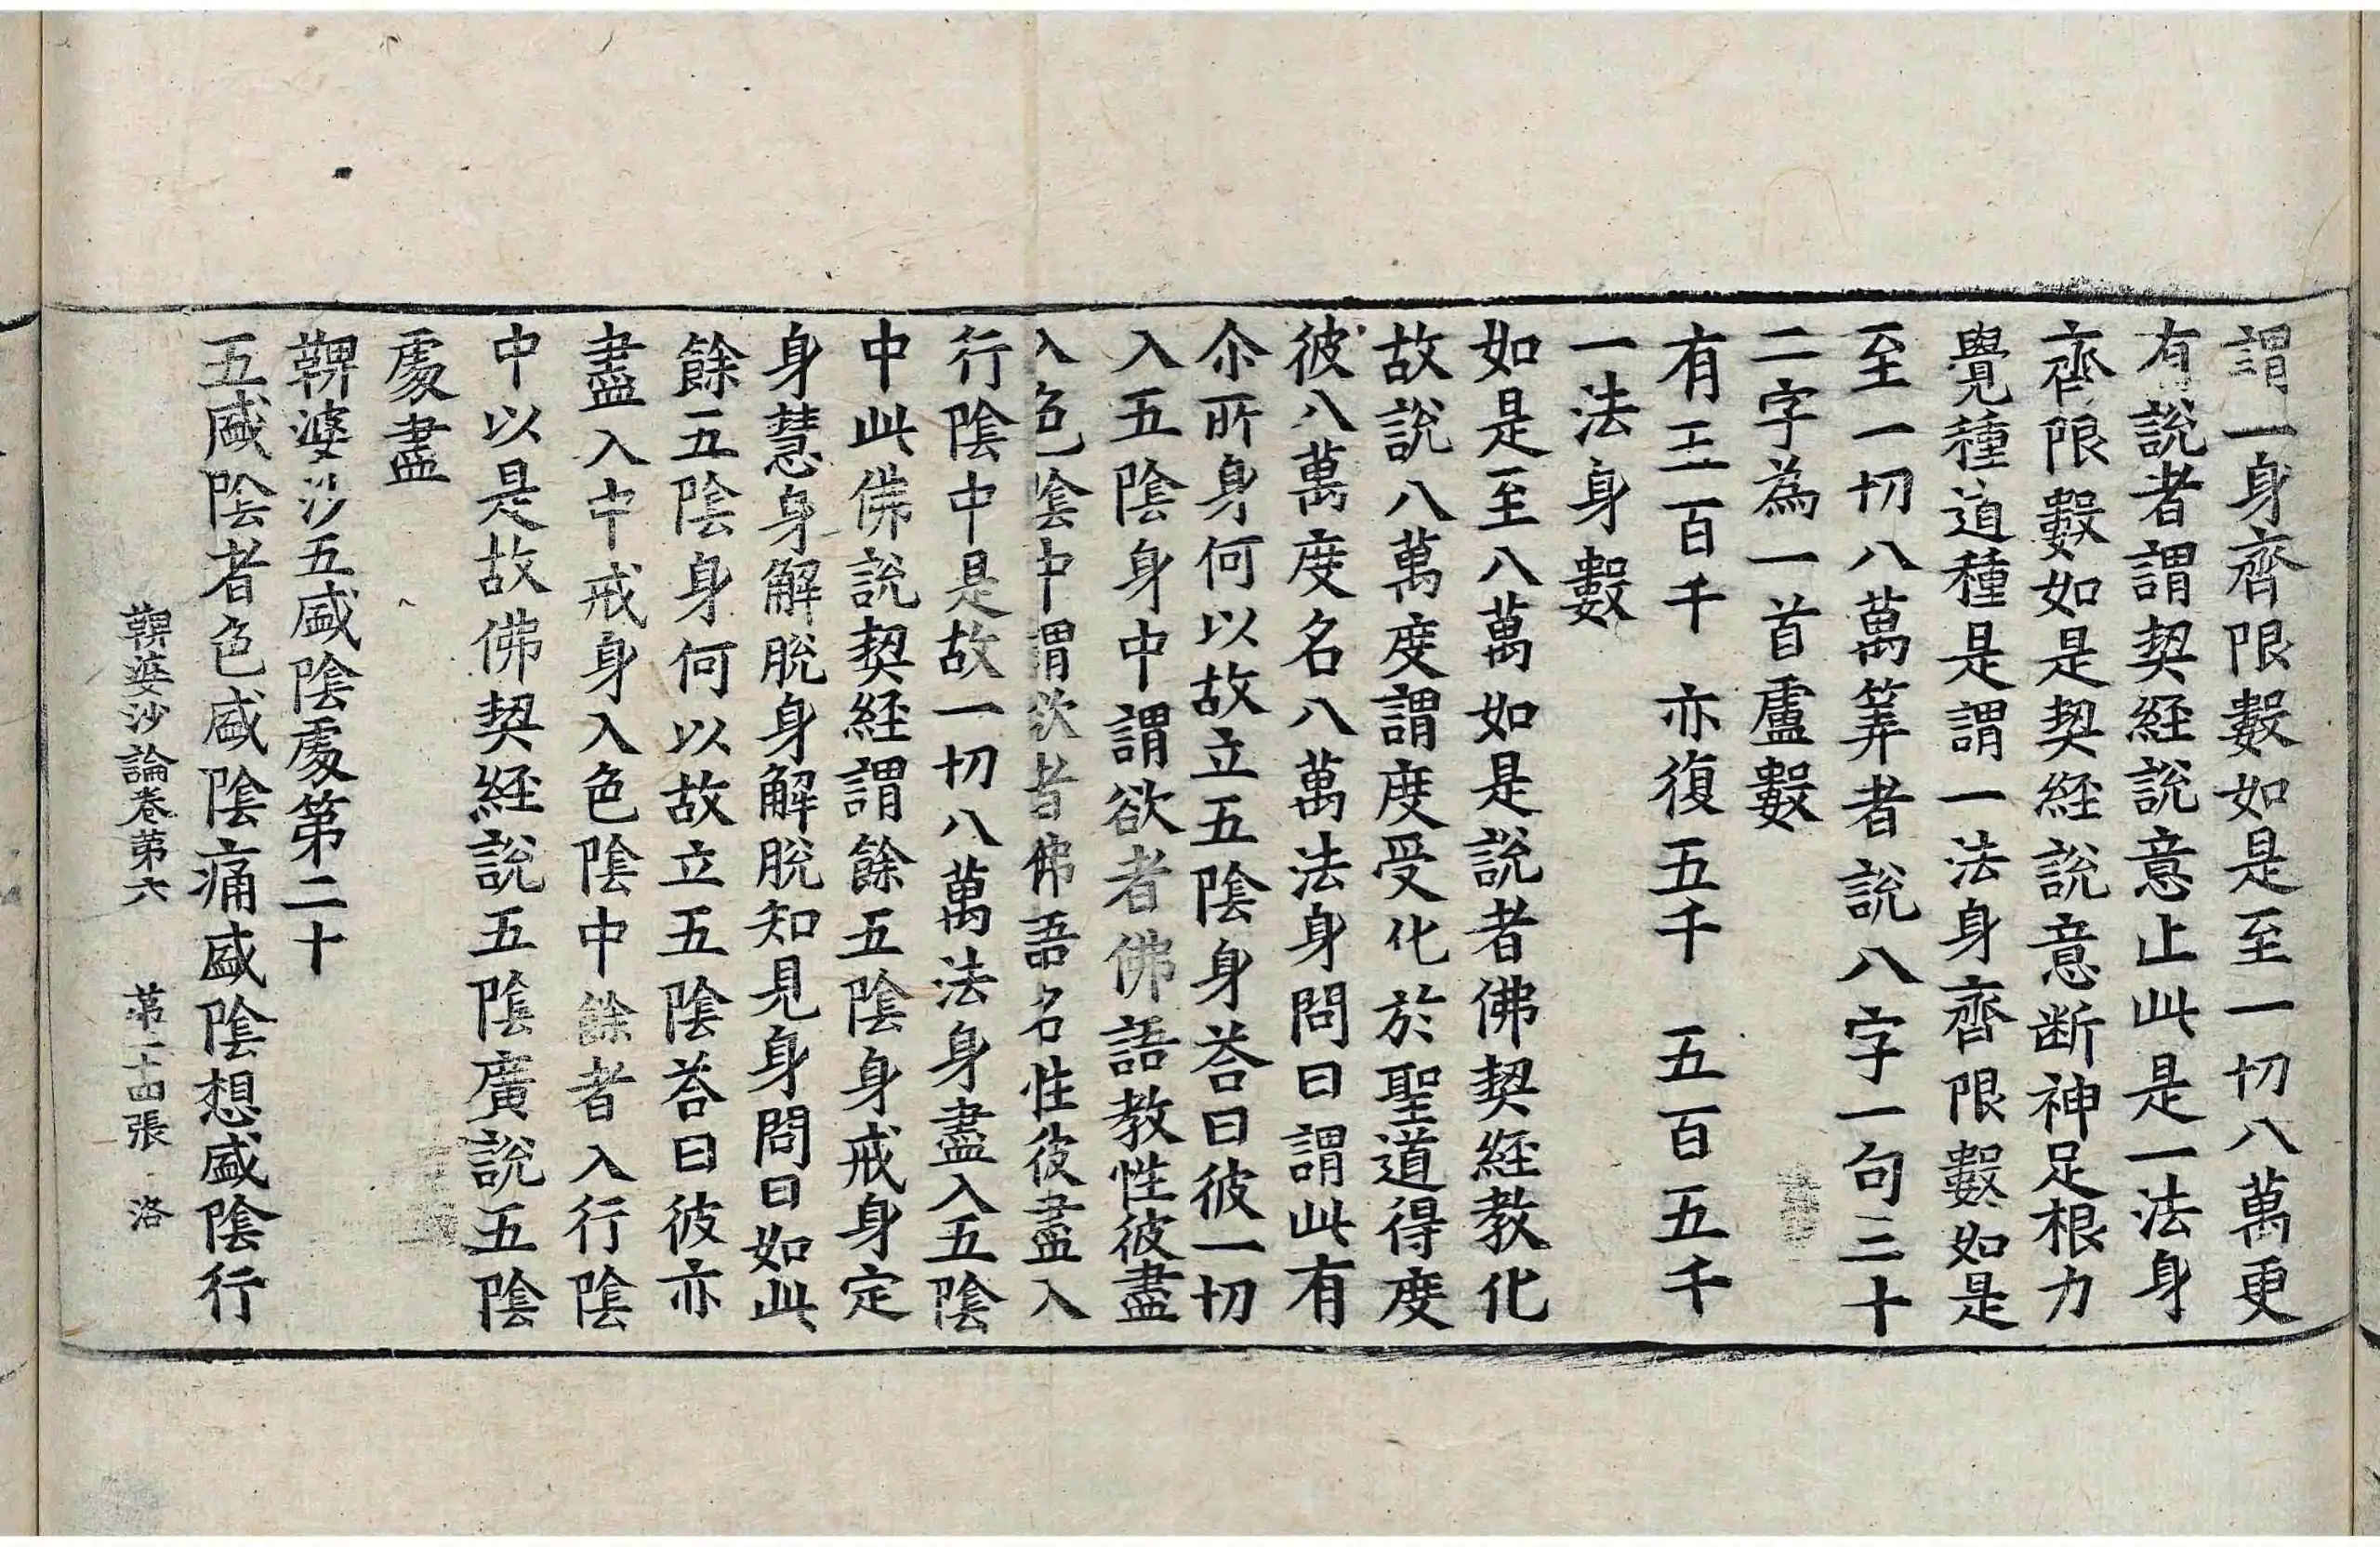 謂一身齊限數如是至一切八萬更
有說者謂契經說意止此是一法身
齊限數如是契經說意断神足根力
覺種道種是謂一法身齊限數如是
至一切八萬筭者說八字一句三十
二字為一首盧數
有五百千 亦復五千 五百五千
一法身數
如是至八萬如是說者佛契經教化
故說八萬度謂度受化於聖道得度
彼八萬度名八萬法身問曰謂此有
尒所身何以故立五陰身荅曰彼一切
入五陰身中謂欲者佛語教性彼盡
入色陰中謂欲者佛語名性彼盡入
行陰中是故一切八萬法身盡入五陰
中此佛說契經謂餘五陰身戒身定
身慧身解脫身解脫知見身問曰如此
餘五陰身何以故立五陰荅曰彼亦
盡入中戒身入色陰中餘者入行陰
中以是故佛契經說五陰廣說五陰
處盡
鞞婆沙五盛陰處第二十
五盛陰者色盛陰痛盛陰想盛陰行
鞞婆沙論卷第六 第二十四張 洛